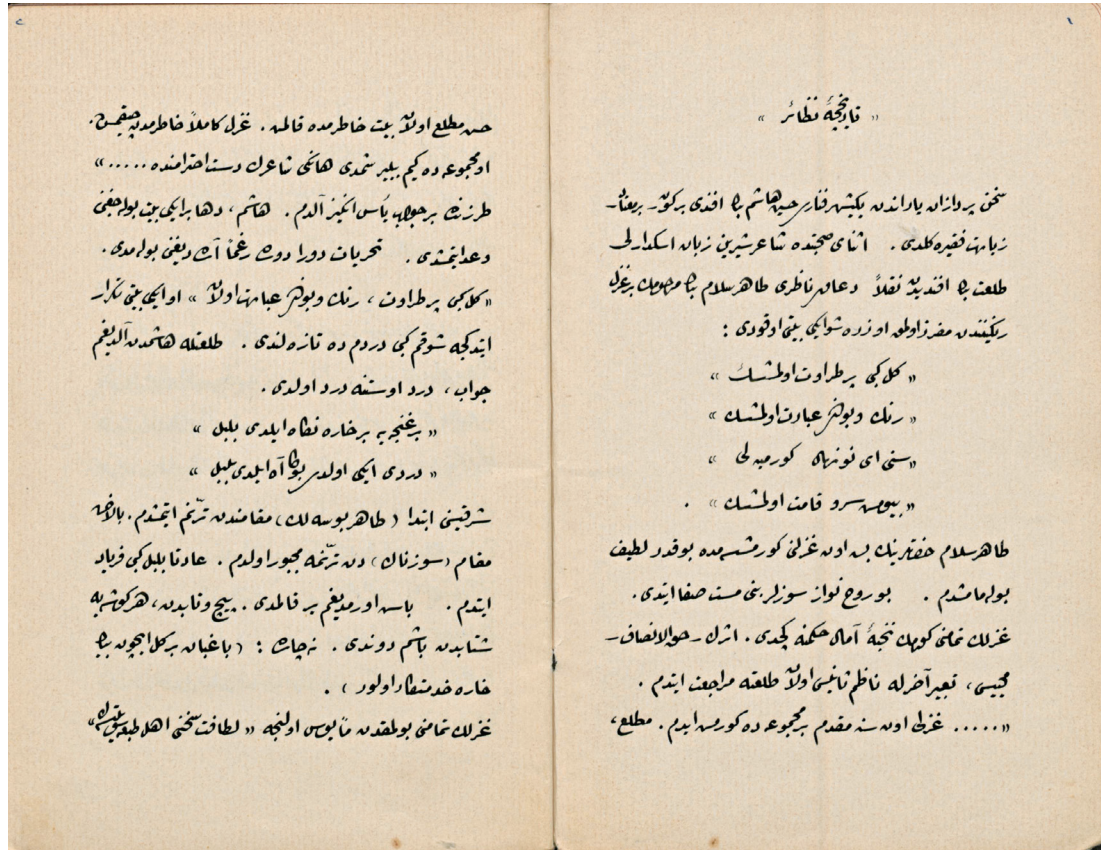 ١
« قاریخچۀ نظائر »
سخن پردازان یاراندن یکیشهر فنارلی حسین هاشم بك افندی برکون بریغتان
زیارت فقیره کلدی . اثنای صحبتده شاعر شیرین زبان اسکدارلی
طلعت بك افندیدن نقلاً دعاوی ناظری طاهر سلام بك مرحومك برغزل
رنکینندن مفرز اولمق اوزره شو ایکی بیتی اوقودی :
« کل کبی پر طراوت اولمشسك »
« رنك وبویدن عبارت اولمشسك »
« سنی ای نونهال کورمیه لی »
« بیومش سرو قامت اولمشسك » .
طاهر سلام حضرتلرینك بش اون غزلنی کورمشسه مده بوقدر لطیف
بوله مامشدم . بو روح نواز سوزلر بنی مست صفا ایتدی .
غزلك تمامنی کورمك نخبۀ آمال حکمنه کچدی . اثرك - حق الانصاف -
محییسی ، تعبیر آخرله ناظم ثانیسی اولان طلعته مراجعت ایتدم .
« ..... غزلی اون سنه مقدم بر مجموعه ده کورمش ایدم . مطلع ،
٢
حسن مطلع اولان بیت خاطرمده قالمش . غزل کاملاً خاطرمدن چیقمش .
او مجموعه ده کیم بیلیر شمدی هانکی شاعرك دست احترامنده ..... »
طرزنده بر جواب یأس انکیز آلدم . هاشم ، دها بر ایکی بیت بوله جغنی
وعد ایتمشدی . تحریات دورا دورك رغماً آرادیغنی بوله مدی .
« کل کبی پر طراوت ، رنك وبویدن عبارت اولان » او ایکی بیتی تکرار
ایتدکجه شوقم کبی دردم ده تازه لندی . طلعتله هاشمدن آلدیغم
جواب ، درد اوستنه درد اولدی .
« بر غنچه یه بر خاره نکاه ایلدی بلبل »
« دردی ایکی اولدی بوکا آه ایلدی بلبل »
شرقیسنی ابتدا ( طاهر بوسه لك ) مقامندن ترنّم ایتمشدم . بالآخره
مقام ( سوزناك ) دن ترنّمه مجبور اولدم . عادتا بلبل کبی فریاد
ایتدم . باش اورمدیغم یر قالمدی . پیچ وتابدن ، هر کوشه یه
شتابدن باشم دوندی . نه چاره : ( باغبان بر کل ایچون بیك
خاره خدمتکار اولور ) .
غزلك تمامنی بولمقدن مأیوس اولنجه « لطافت سخنی اهل طبع